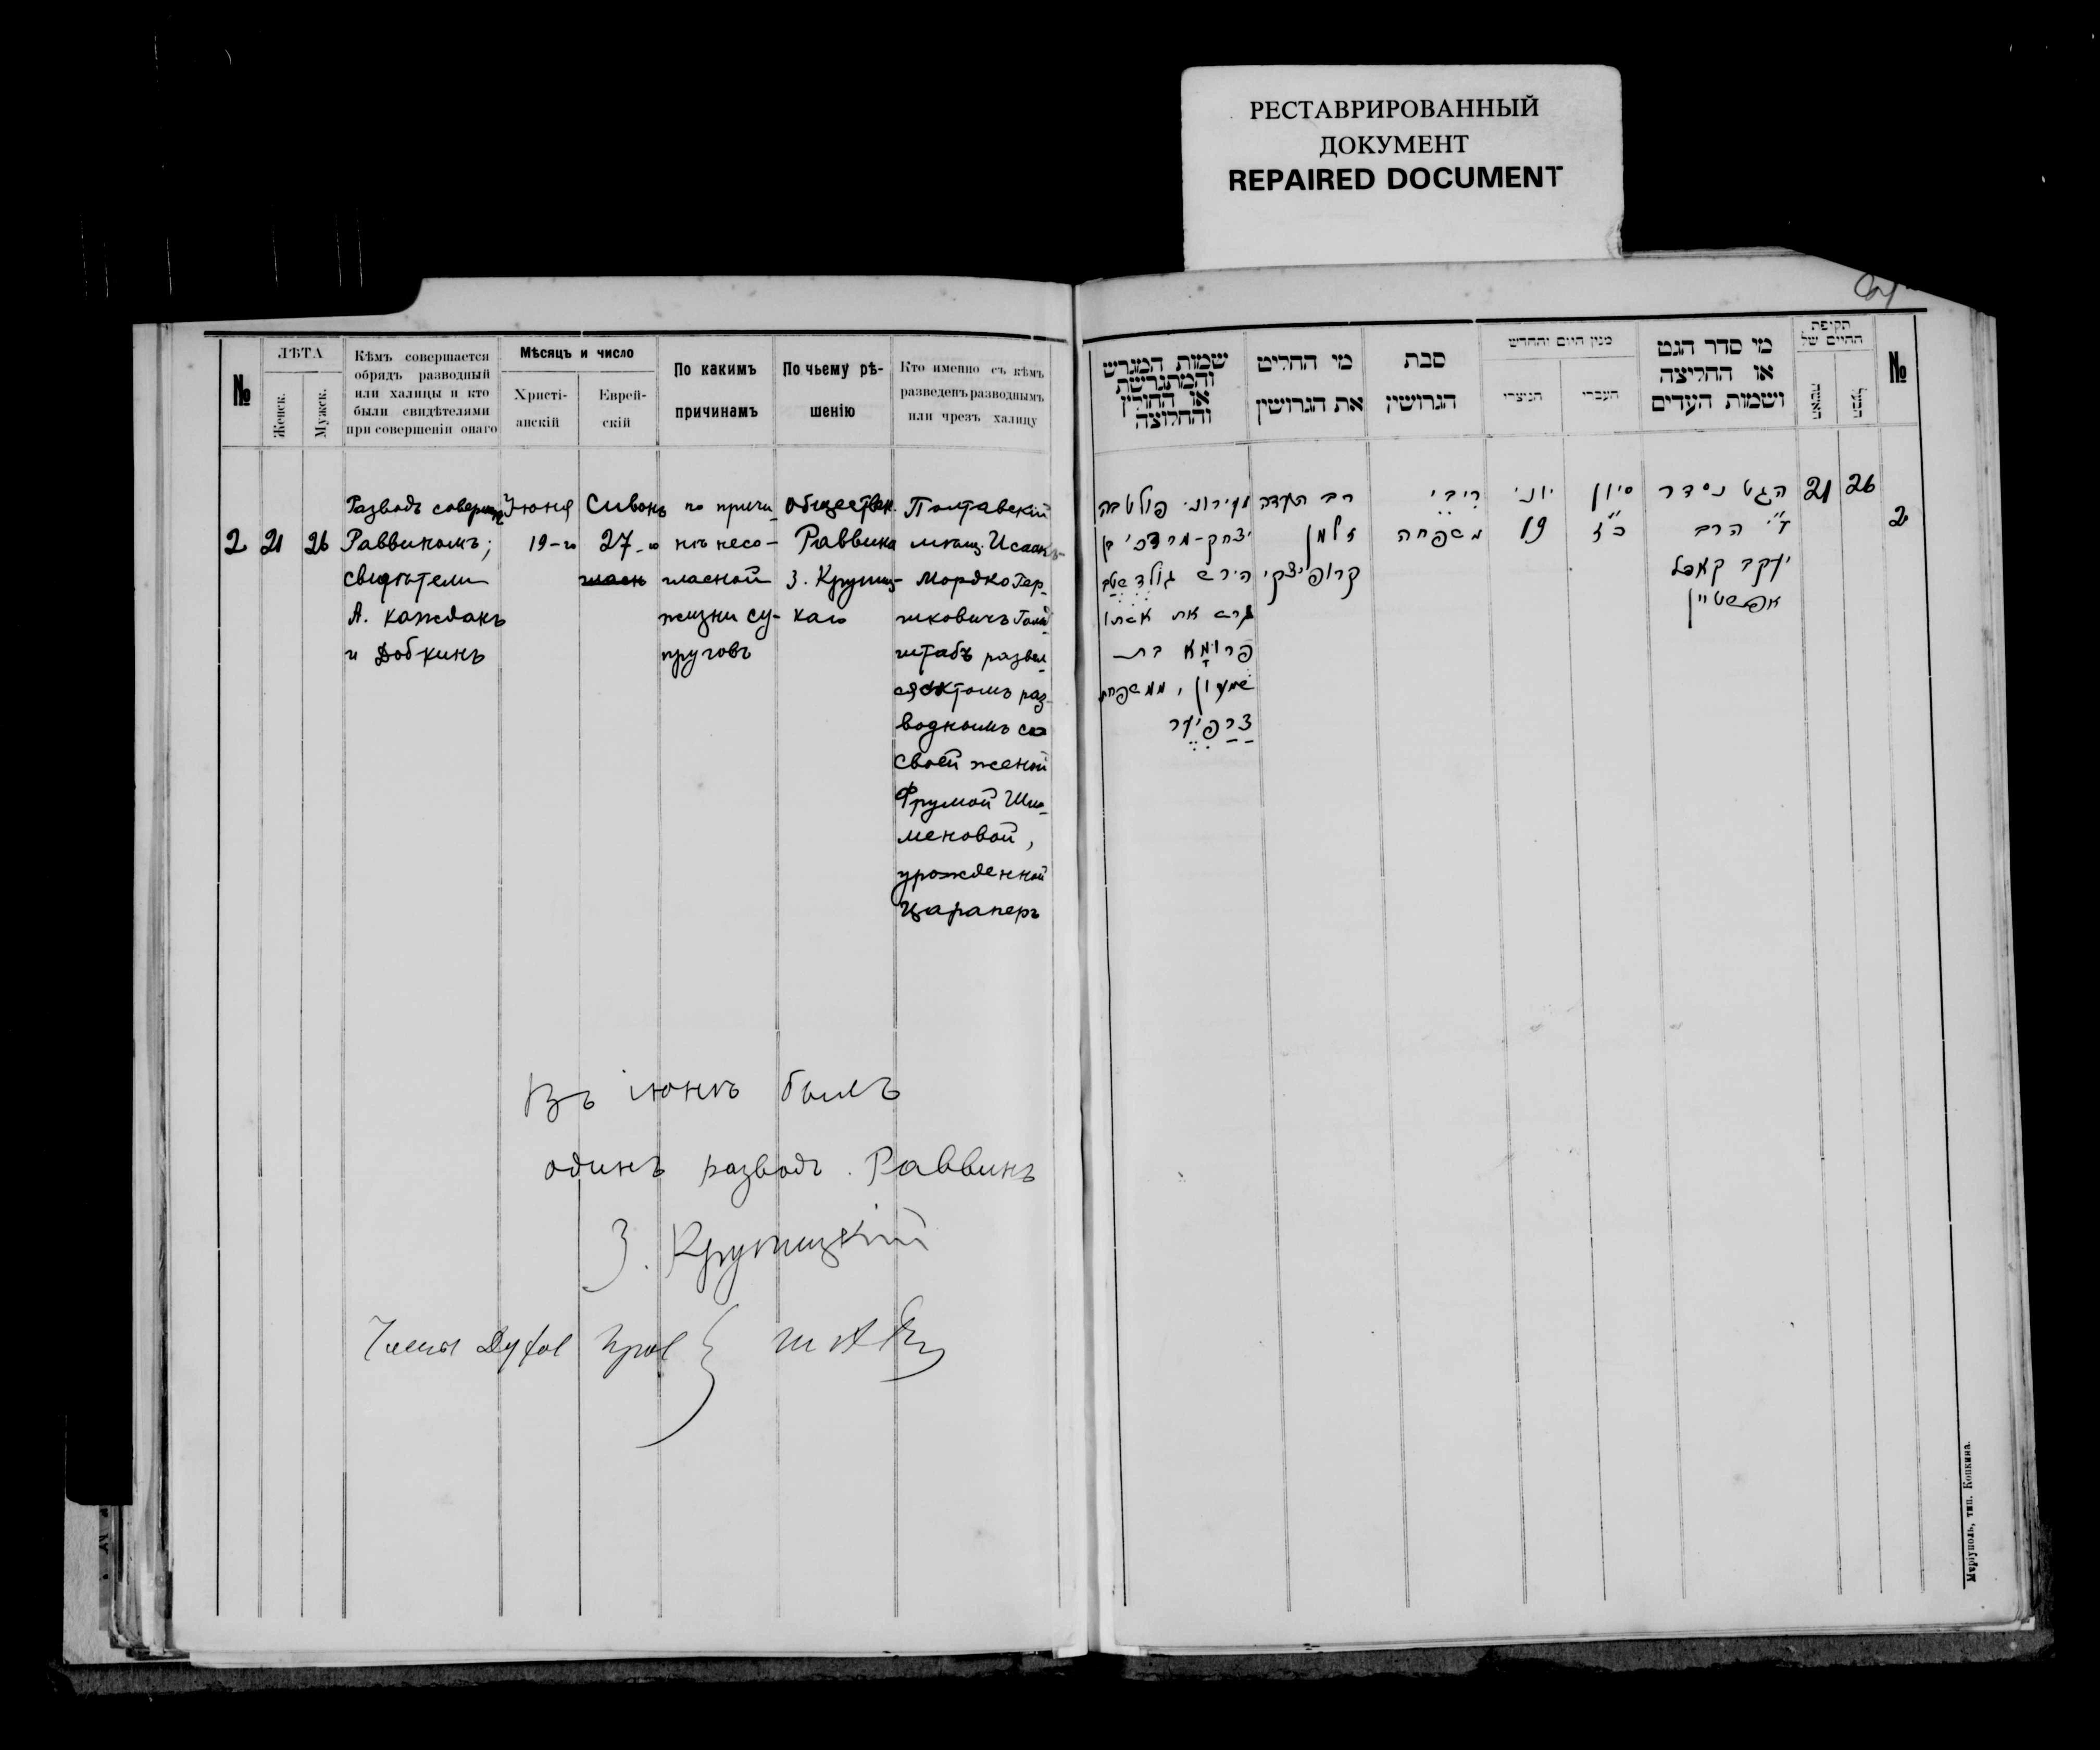 РЕСТАВРИРОВАННЫЙ
ДОКУМЕНТ
REPAIRED DOCUMENT
№
ЛѢТА
Женск.
Мужск.
Кѣмъ совершается
обрядъ разводный
или халицы и кто
были свидѣтелями
при совершеніи онаго
Мѣсяцъ и число
Христі-
анскій
Еврей-
скій
По какимъ
причинамъ
По чьему рѣ-
шенію
Кто именно съ кѣмъ
разведенъ разводнымъ
или чрезъ халицу
2
21
26
Разводъ соверш
Раввиномъ;
свидѣтели
А. Каждакъ
и Добкинъ
Іюня
19-го
Сивонъ
27-го
по причи-
нѣ несо-
гласной
жизни су-
пруговъ
Обществен.
Раввина
З. Крупиц-
каго
Полтавскій
мѣщ. Исаакъ-
Мордко Гер-
шковичъ Голд-
штабъ развел-
ся актомъ раз-
воднымъ со
своей женой
Фрумой Ши-
меновой,
урожденной
Царалеръ
Въ іюнѣ былъ
одинъ разводъ. Раввинъ
З. Крупицкій
Члены Духов Прав
שמות המגרש
והמתגרשת
או החולץ
והחלוצה
מי החליט
את הגרושין
סבת
הגרושין
מנין היום והחדש
הנוצרי
העברי
מי סדר הגט
או החליצה
ושמות העדים
תקופת
החיים של
האשה
הבעל
№
2
26
21
הגט נסדר
ע"י הרב
יעקב קאפל
אפשטיין
סיון
כ"ז
יוני
19
ריבי
משפחה
רב העדה
זלמן
קרופיצקי
עירוני פולטבה
יצחק-מרדכי בן
הירש גולדשטב
גרש את אשתו
פרומא בת
שמעון, ממשפחת
צרפיער
Маріуполь, тип. Копкина.